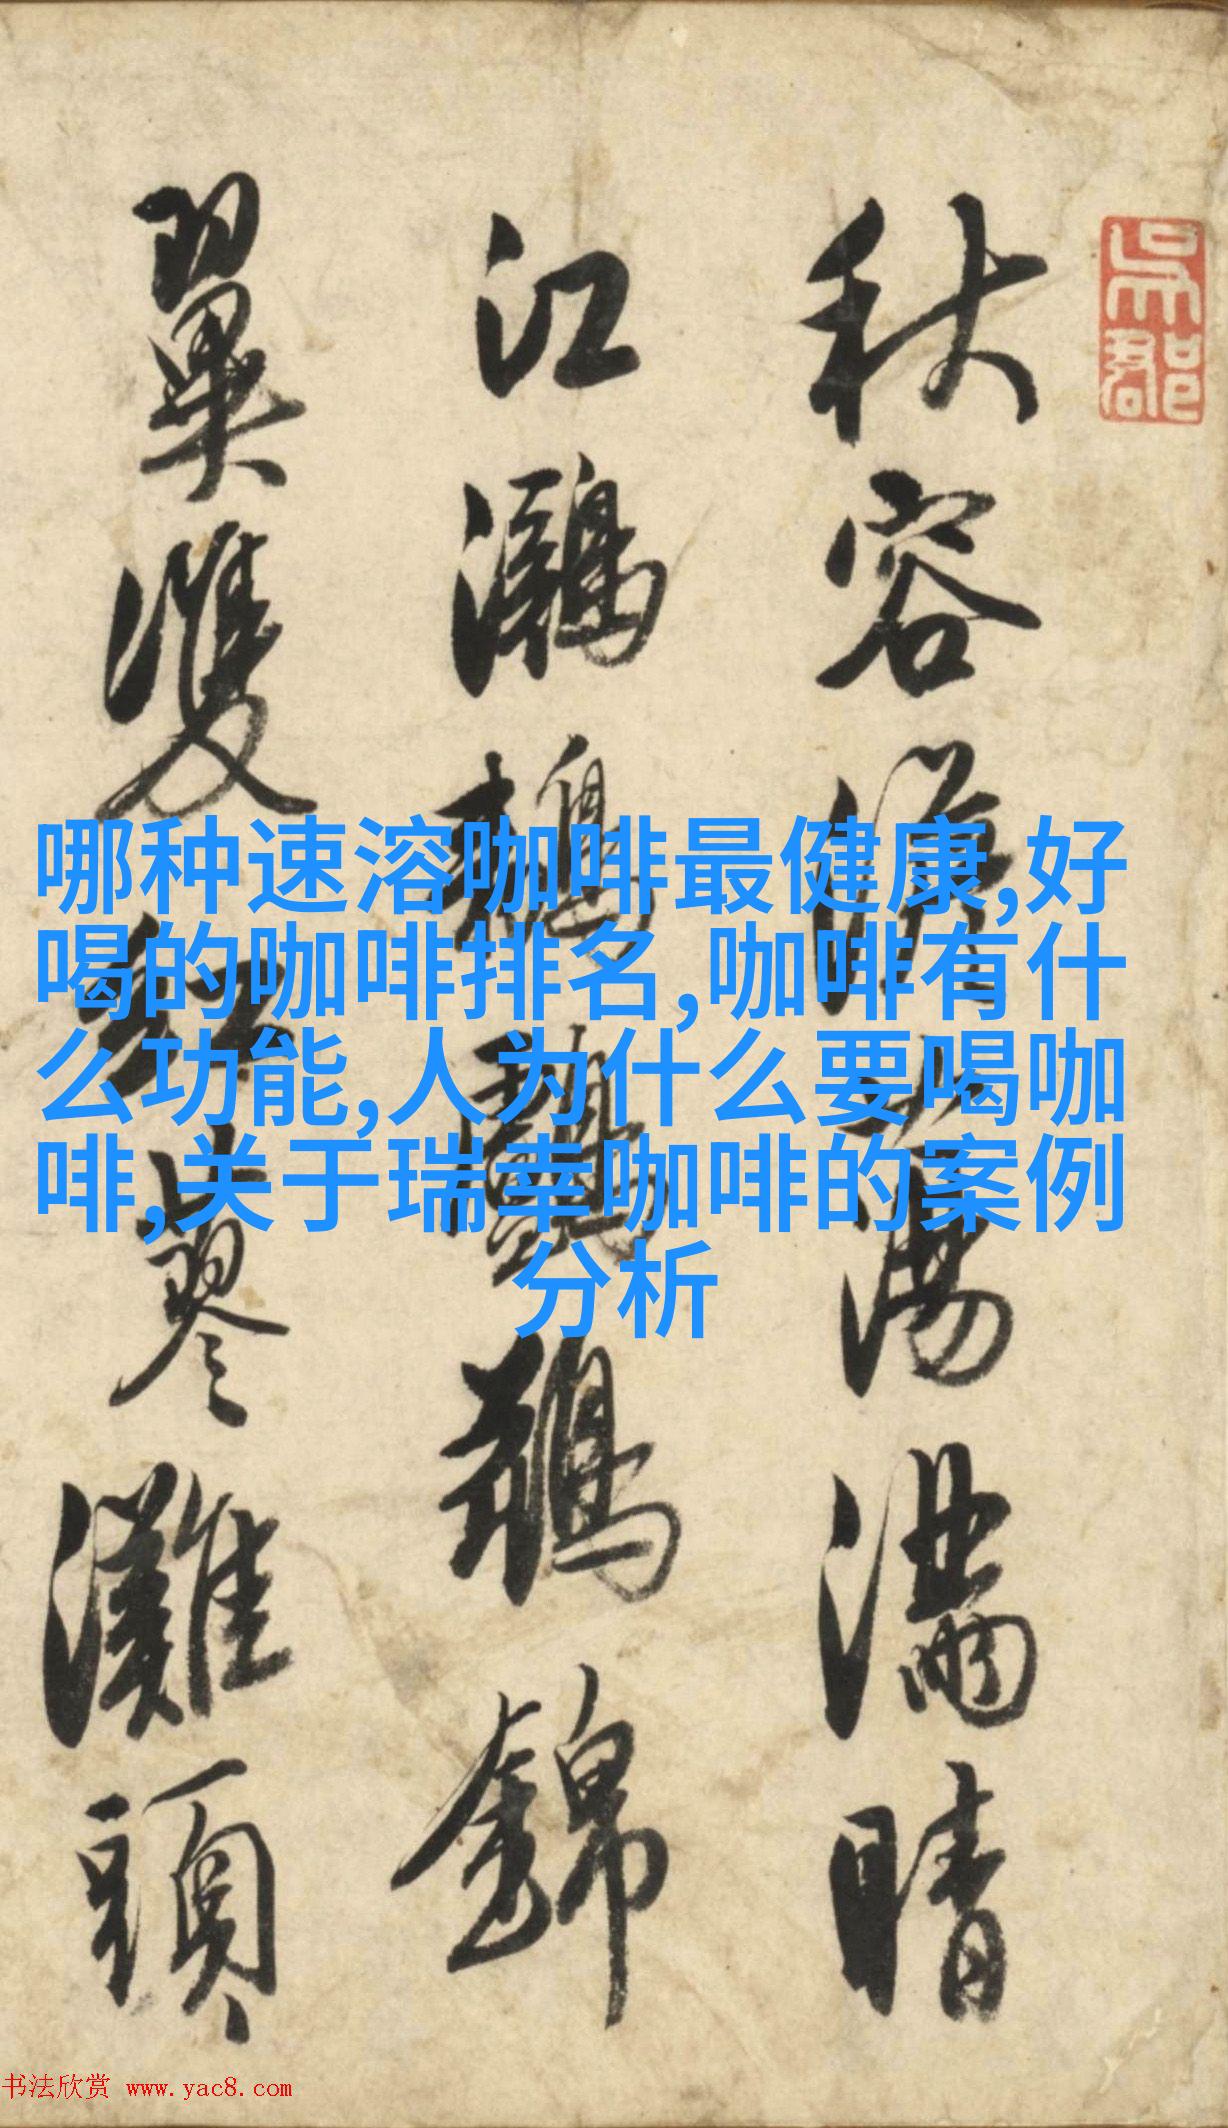 秋容淡蕩滿晴
江鸂鶒鸕鶿錦
翼雙紅蓼灘頭
吳郡
哪种速溶咖啡最健康,好
喝的咖啡排名,咖啡有什
么功能,人为什么要喝咖
啡,关于瑞幸咖啡的案例
分析
书法欣赏 www.yac8.com